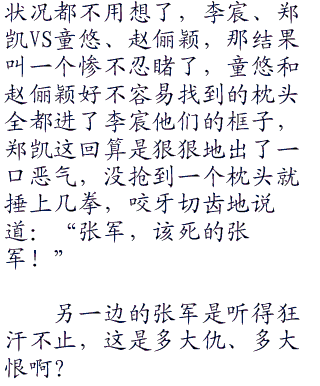 状况都不用想了，李宸、郑
凯VS童悠、赵俪颖，那结果
叫一个惨不忍睹了，童悠和
赵俪颖好不容易找到的枕头
全都进了李宸他们的框子，
郑凯这回算是狠狠地出了一
口恶气，没抢到一个枕头就
捶上几拳，咬牙切齿地说
道：“张军，该死的张
军！”
另一边的张军是听得狂
汗不止，这是多大仇、多大
恨啊？